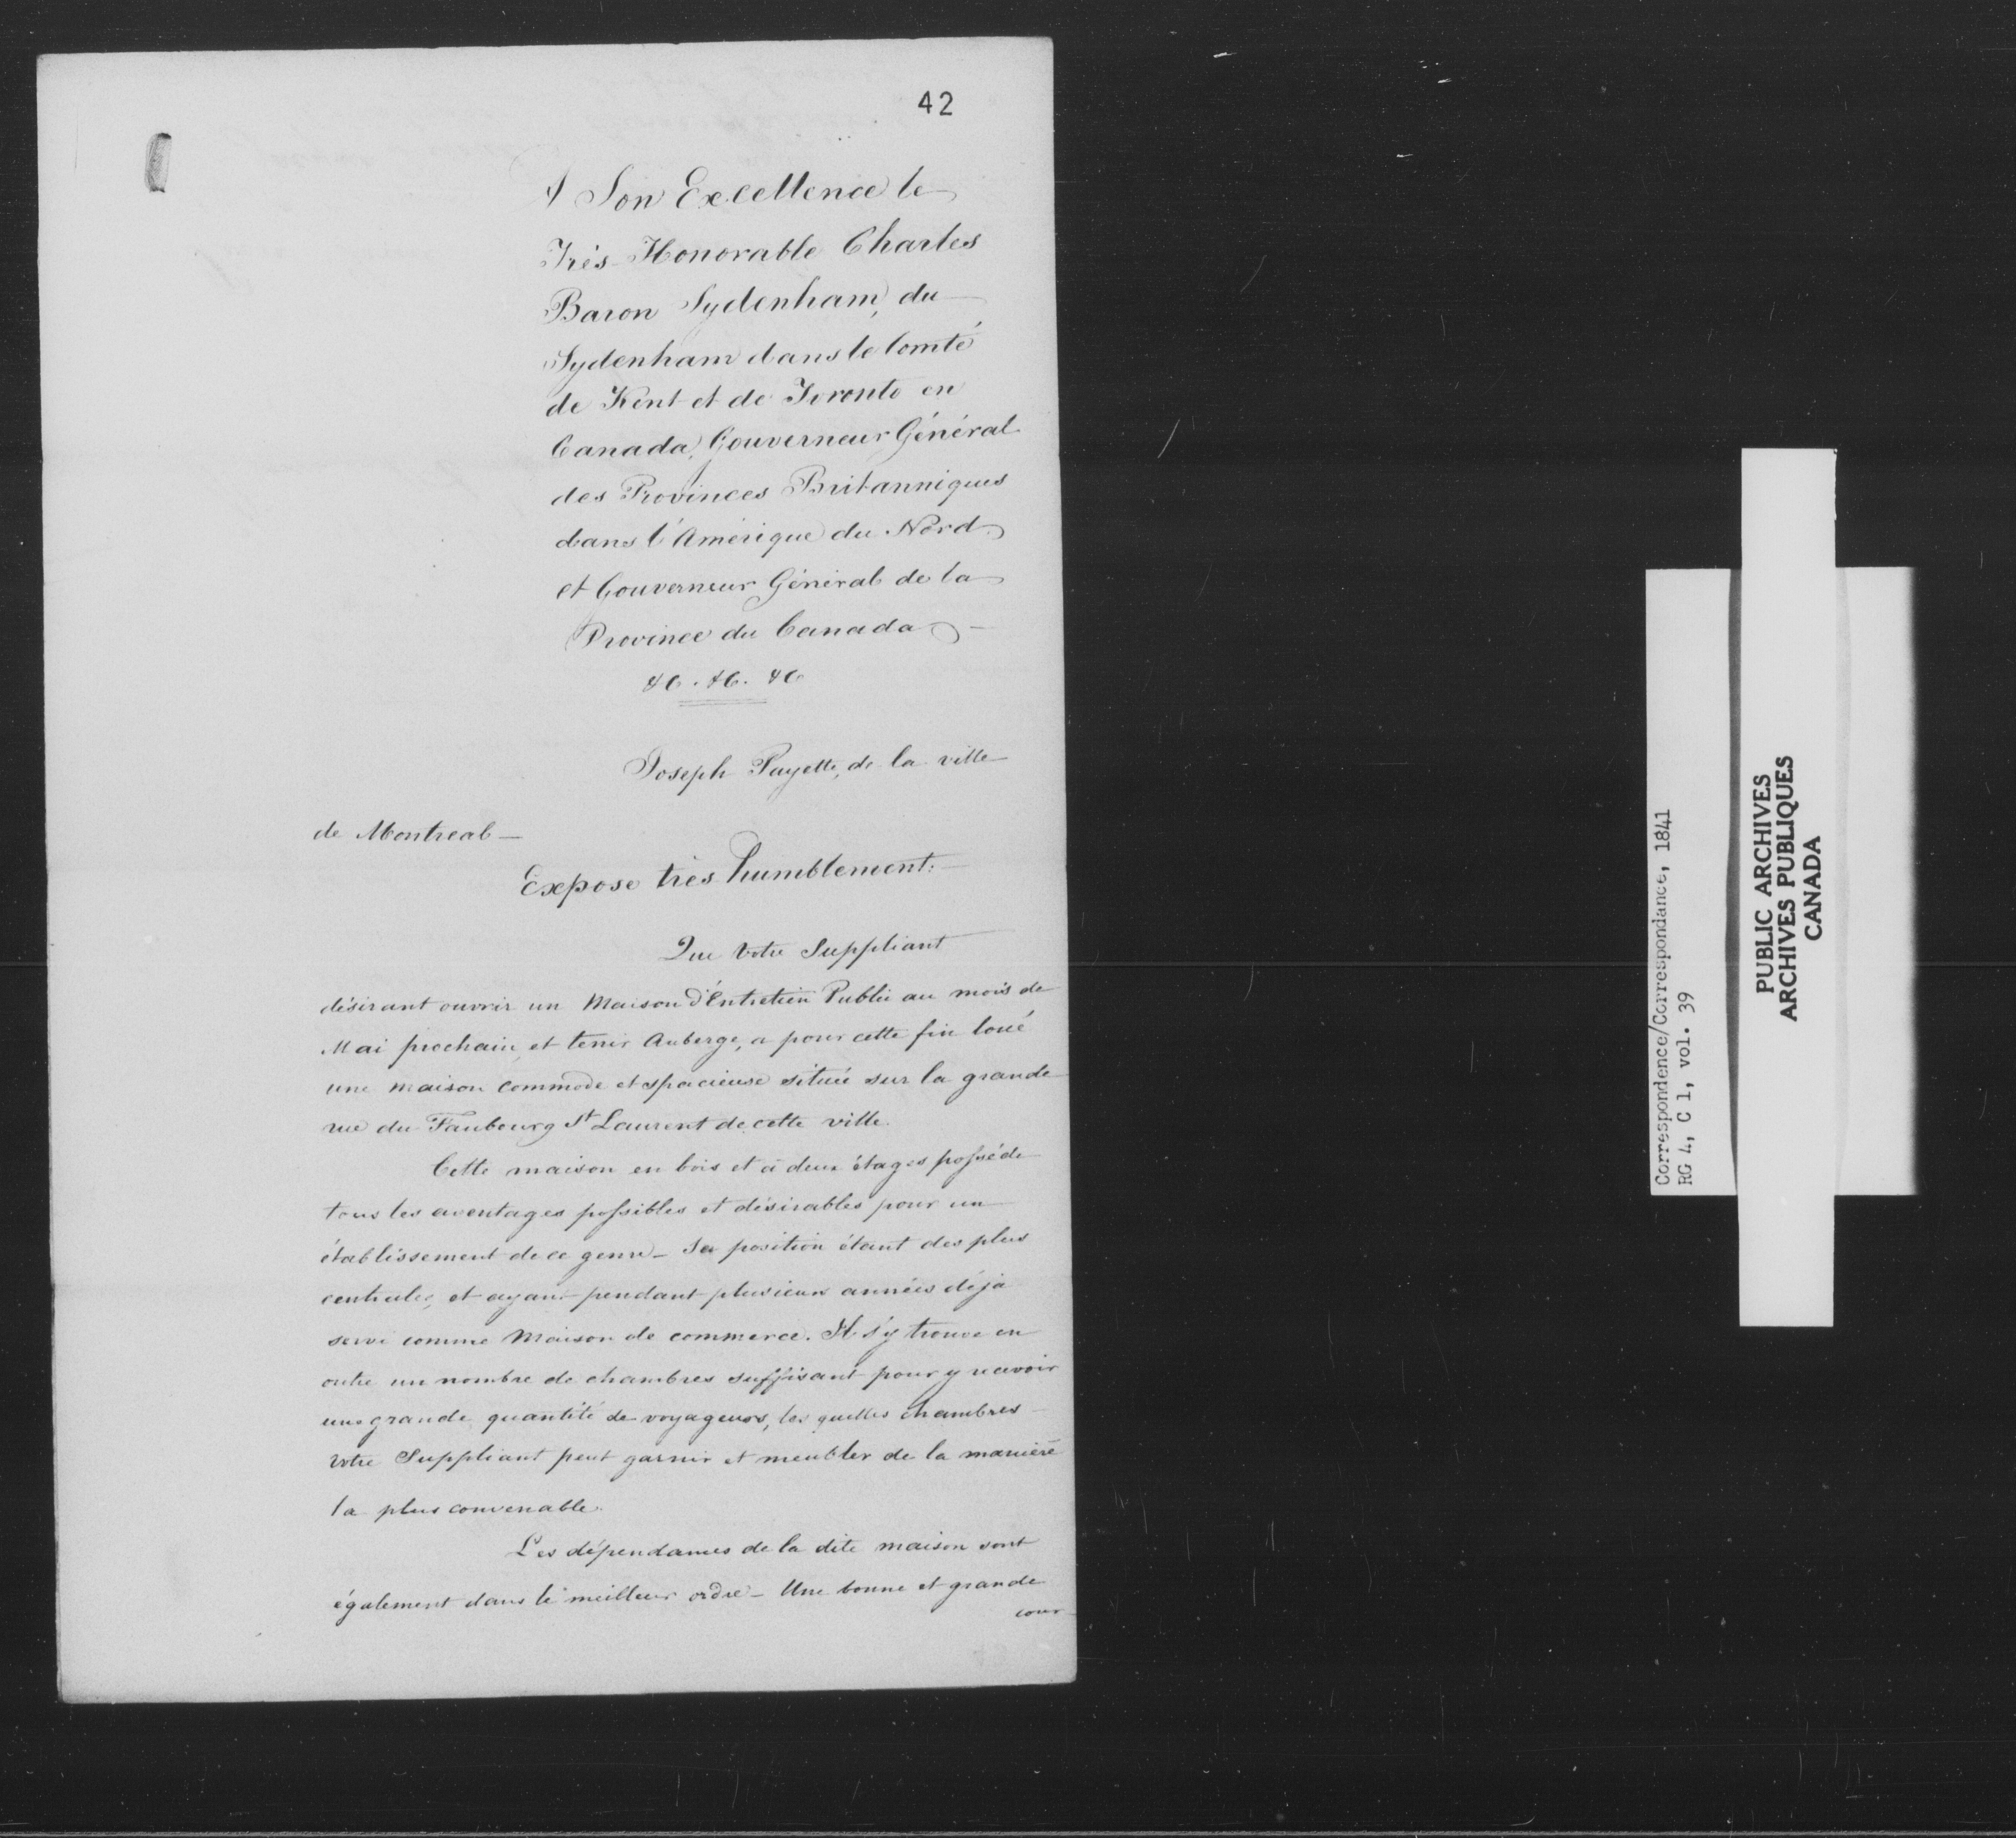 42
A Son Excellence le
Très-Honorable Charles
Baron Sydenham, du
Sydenham dans le Comté
de Kent et de Toronto en
Canada, Gouverneur Général
des Provinces Britanniques
dans l'Amérique du Nord
et Gouverneur Général de la
Province du Canada —
&c. &c. &c
Joseph Payette, de la ville
de Montreal —
Expose très humblement: —
Que Votre Suppliant
désirant ouvrir un Maison d'Entretien Public au mois de
Mai prochain, et tenir Auberge, a pour cette fin loué
une maison commode et spacieuse située sur la grande
rue du Faubourg St Laurent de cette ville.
Cette maison en bois et à deux étages possède
tous les aventages possibles et désirables pour un
établissement de ce genre — Sa position étant des plus
centrales, et ayant pendant plusieurs années déja
servi comme Maison de commerce. Il s'y trouve en
outre un nombre de chambres suffisant pour y recevoir
une grande quantité de voyageurs, les quelles chambres
votre Suppliant peut garnir et meubler de la manière
la plus convenable.
Les dépendances de la dite maison sont
également dans le meilleur ordre — Une bonne et grande
cour
Correspondence/Correspondance, 1841
RG 4, C 1, vol. 39
PUBLIC ARCHIVES
ARCHIVES PUBLIQUES
CANADA